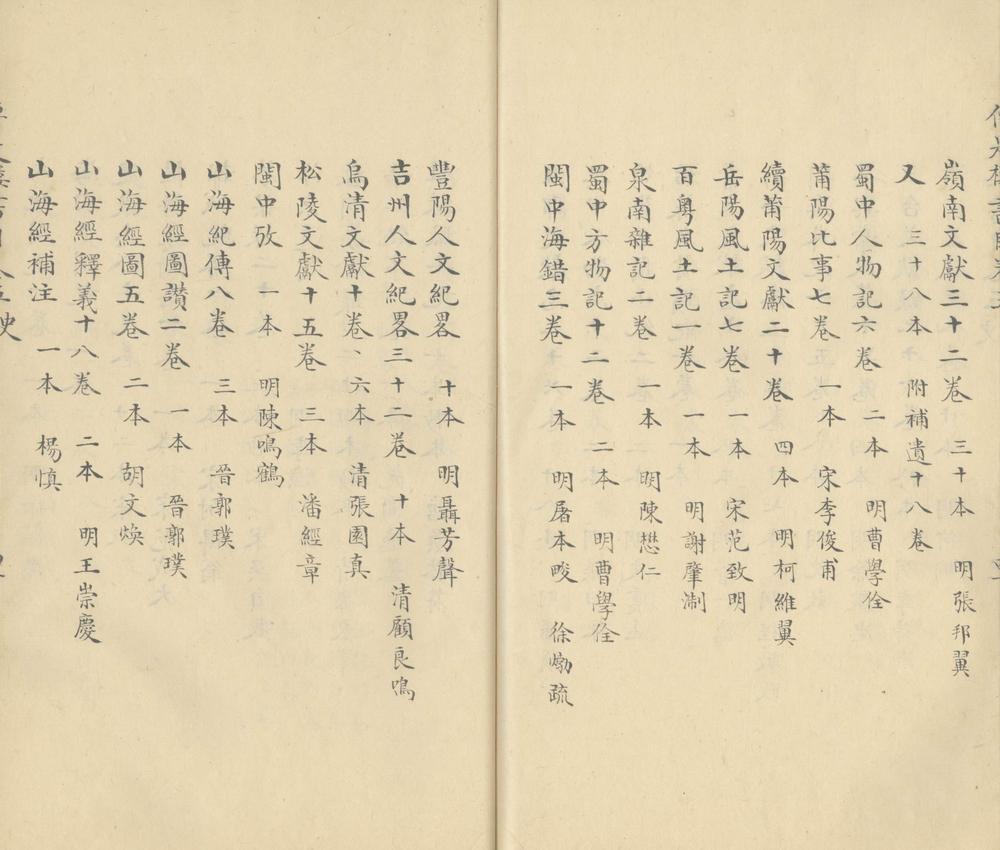 嶺南文獻三十二卷 三十本 明張邦翼
又 三十八本 附補遺十八卷
蜀中人物記六卷 二本 明曹學佺
莆陽比事七卷 一本 宋李俊甫
續莆陽文獻二十卷 四本 明柯維翼
岳陽風土記七卷 一本 宋范致明
百粵風土記一卷 一本 明謝肇淛
泉南雜記二卷 一本 明陳懋仁
蜀中方物記十二卷 二本 明曹學佺
閩中海錯三卷 一本 明屠本畯 徐𤊹疏
豐陽人文紀畧 十本 明聶芳聲
吉州人文紀畧三十二卷 十本 清顧良鳴
烏清文獻十卷、六本 清張園真
松陵文獻十五卷 三本 潘經章
閩中攷 一本 明陳鳴鶴
山海紀傳八卷 三本 晉郭璞
山海經圖讚二卷 一本 晉郭璞
山海經圖五卷 二本 胡文煥
山海經釋義十八卷 二本 明王崇慶
山海經補注 一本 楊慎